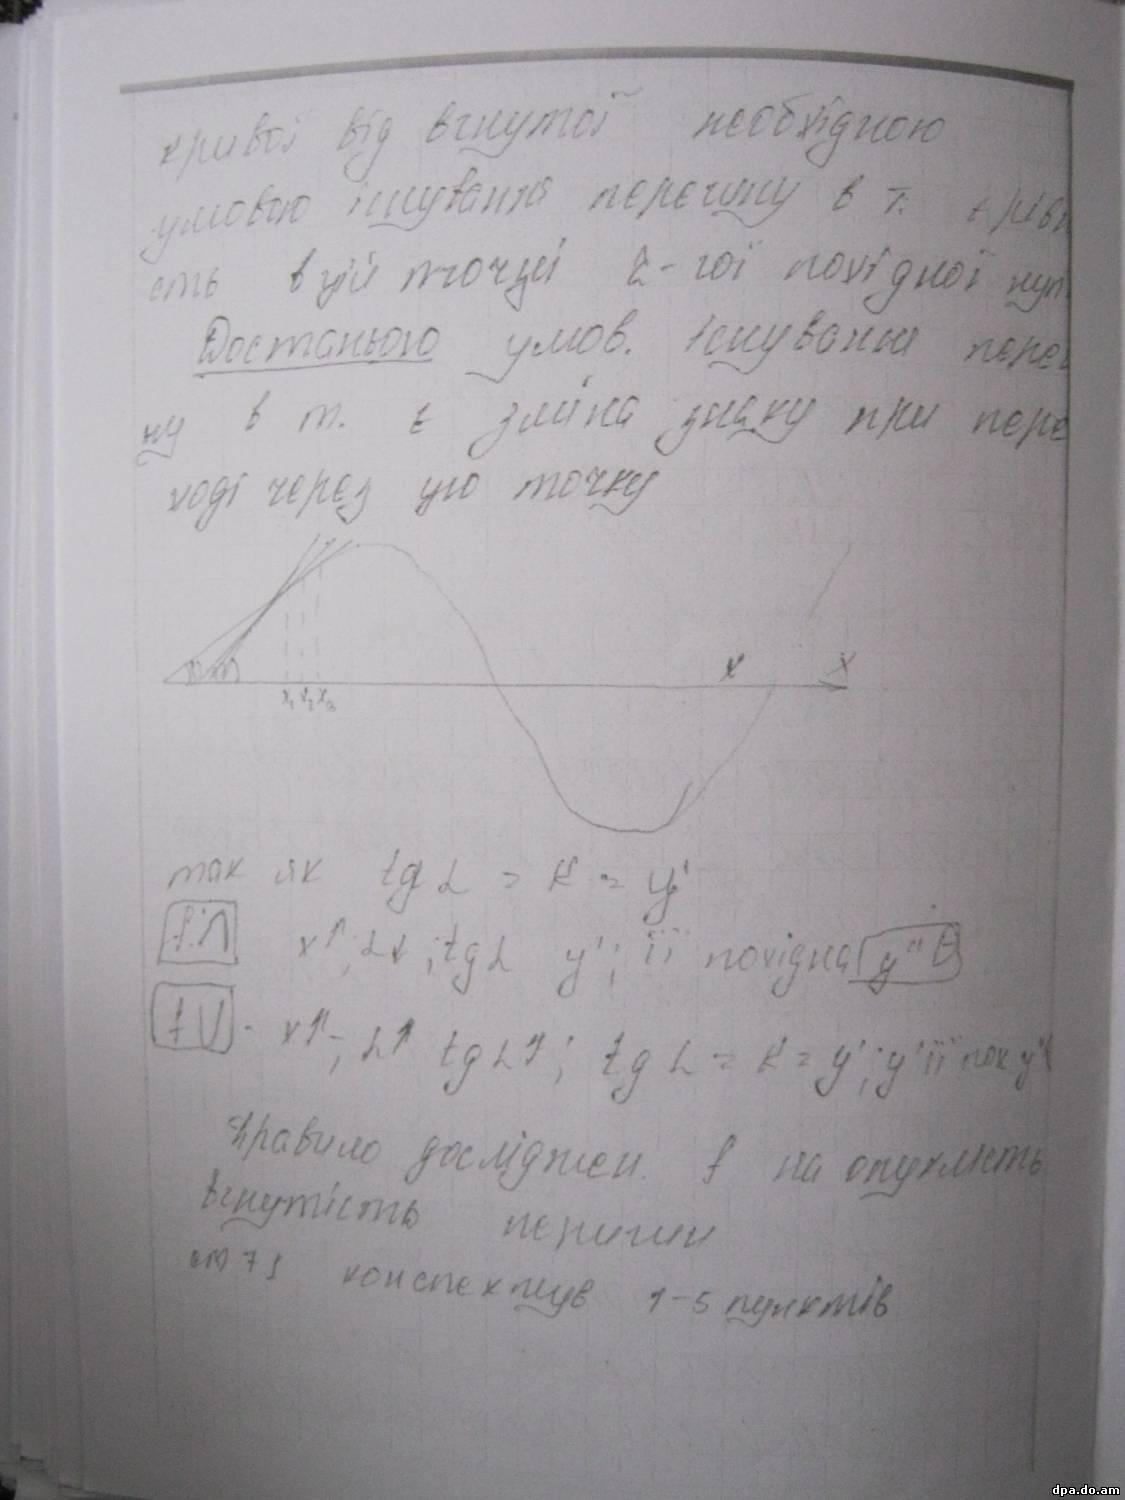 кривої від вгнутої необхідною
умовою існування перегину в т. є рівн
сть в цій точці 2-гої похідної нул
Достаньою умов. існування переги
ну в т. є зміна знаку при пере
ході через цю точку
x x
x₁ x₂ x₃
так як tg α = k = y'
f ∩ x↑; α↓; tg α y'; її похідна y''
f U - x↑; α↑ tg α↑; tg α = k = y'; y' її пох y''
Правило досліджен. f на опуклість
вгнутість перегин
ст 71 конспектув 1-5 пунктів
dpa.do.am